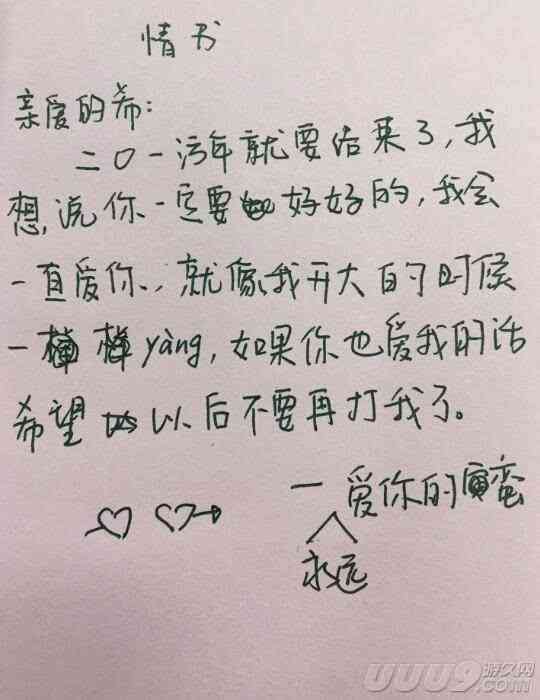 情书
亲爱的希：
二〇一污年就要结束了，我
想说你一定要好好的，我会
一直爱你，就像我开大的时候
一 yàng，如果你也爱我的话
希望以后不要再打我了。
一 爱你的蛮
永远
UUU9 游久网
.COM